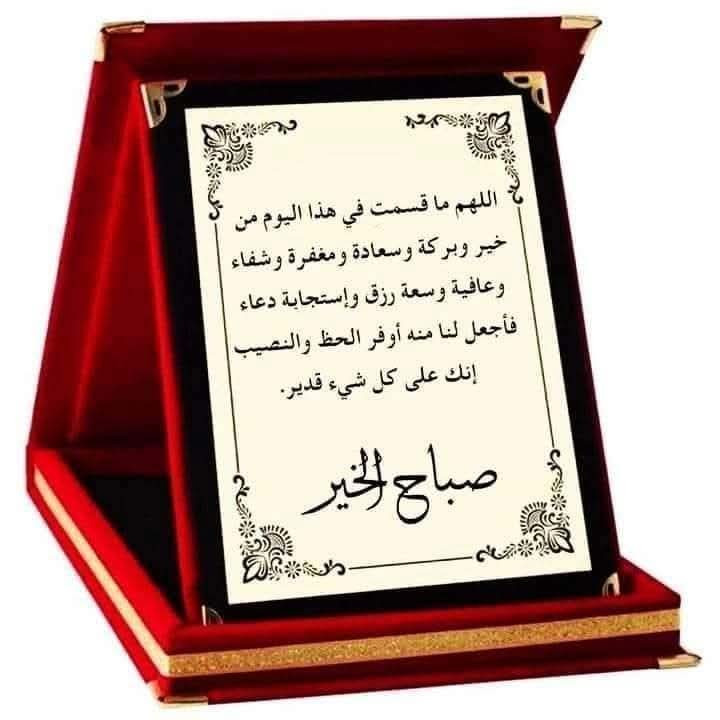 اللهم ما قسمت في هذا اليوم من
خير وبركة وسعادة ومغفرة وشفاء
وعافية وسعة رزق وإستجابة دعاء
فأجعل لنا منه أوفر الحظ والنصيب
إنك على كل شيء قدير.
صباح الخير